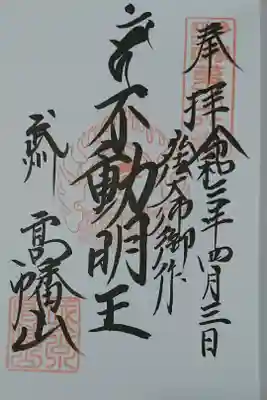 奉拝 令和三年四月三日
弘法大師御作
不動明王
武州
高幡山